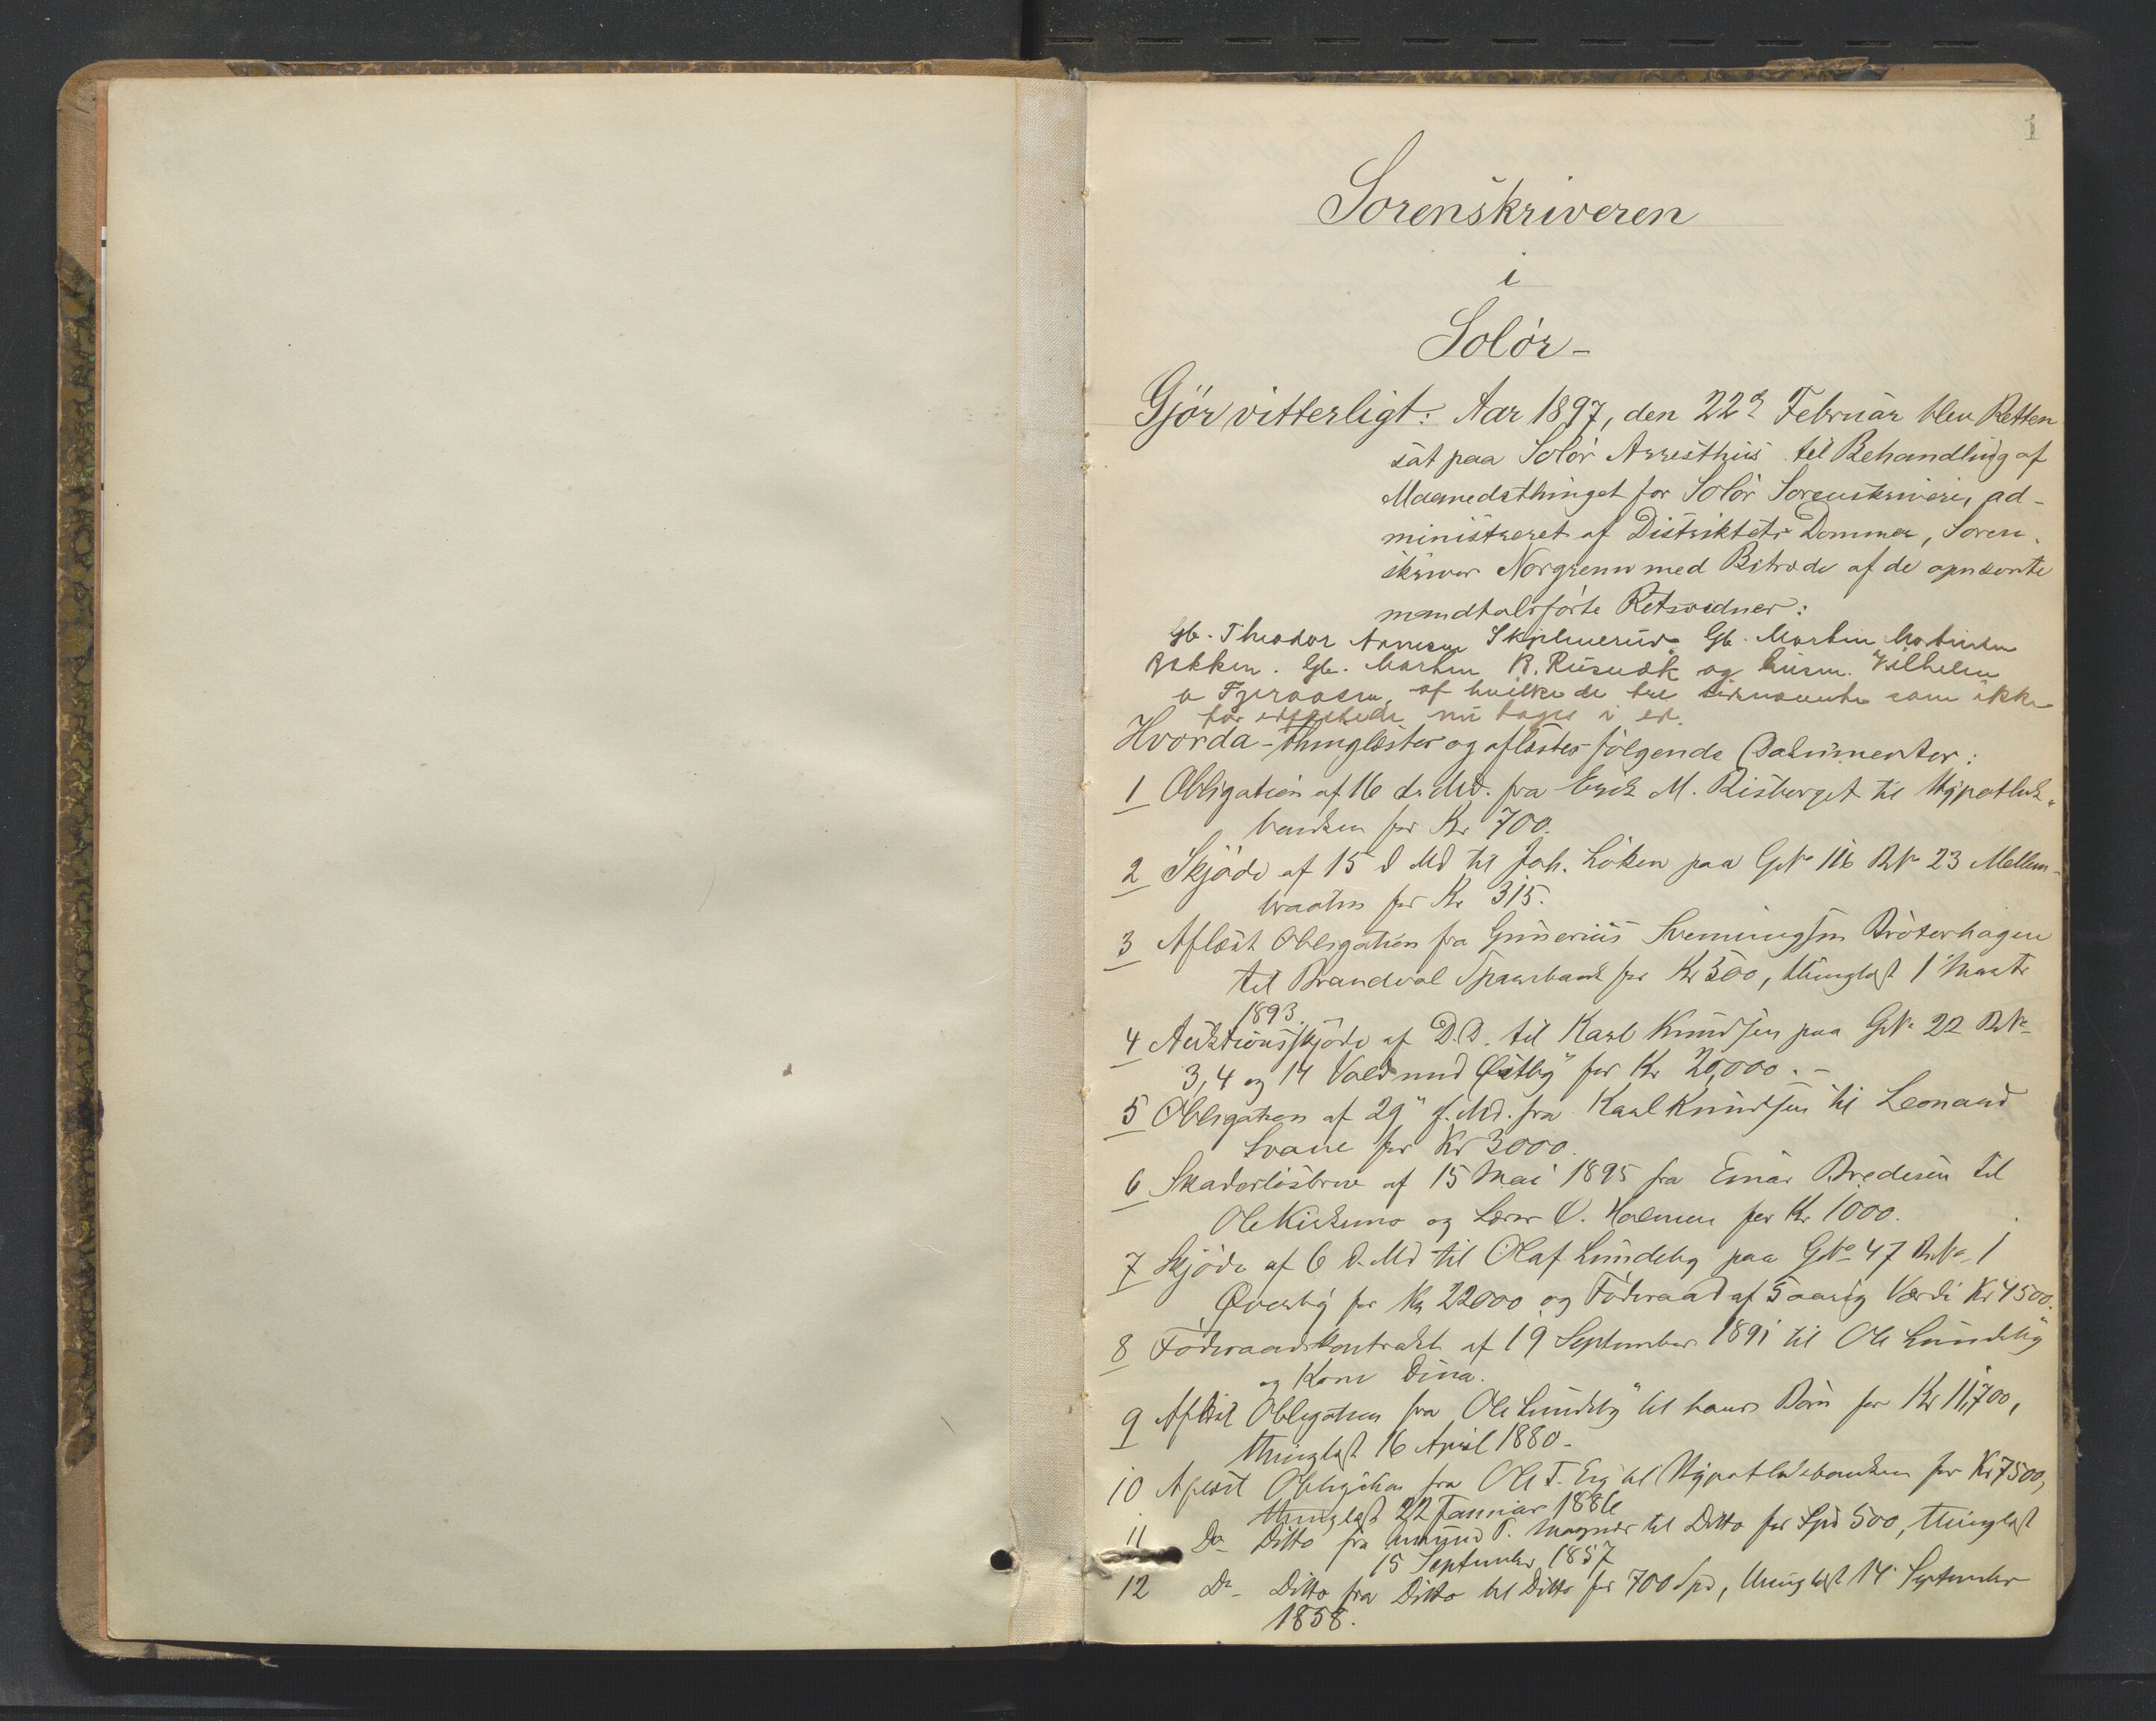 1
Sorenskriveren
i
Solör -
Gjör vitterligt: Aar 1897, den 22de Februar blev Retten
sat paa Solör Arresthus til Behandling af
Maanedsthinget for Solör Sorenskriveri, ad-
ministreret af Distriktets Dommer, Soren-
skriver Norgrenn med Bitræde af de opnævnte
mandtalsförte Retsvidner:
Gb. Theodor Arnesen Gb. Martin
Bakken. Gb. Martin R. Rusvæk og husm. Vilhelm
af hvilke de tre som ikke
för nu toges i ed.
Hvorda thinglæstes og aflæstes følgende Dokumenter:
1 Obligation af 16 ds. Md. fra Erik M. Risberget til Hypothek-
banken for Kr 700.
2 Skjöde af 15 d Md til Joh. Löken paa GNo 116 BNo 23 Mellem-
braaten for Kr 315.
3 Aflæst Obligation fra Gunerius Svenningsen Bröterhagen
til Brandval Sparebank for Kr 500, thinglæst 1 Marts
1893.
4 Auktionsskjöde af D.D. til Karl Knudsen paa GNo 22 BNo
3, 4 og 14 Vold med Østby for Kr 20,000. -
5 Obligation af 29 f. Md. fra Karl Knudsen til Leonard
Svane for Kr 3000.
6 Skadeslösbrev af 15 Mai 1895 fra Einar Bredesen til
Ole Kirkemo og Lærer O. Holmen for Kr 1000.
7 Skjöde af 6 d. Md til Olaf Lundeby paa GNo 47 BNo 1
Øverby for Kr 22000 og Föderaad af 5 aarig Værdi Kr 4500.
8 Föderaadskontrakt af 19 September 1891 til Ole Lundeby
og Kone Dina.
9 Aflæst Obligation fra Ole Lundeby til hans Börn for Kr 11,700,
thinglæst 16 April 1880 -
10 Aflæst Obligation fra Ole T. Eng til Hypothekbanken for Kr 7500,
thinglæst 22 Januar 1886
11 Do Ditto fra Amund T. Magnor til Ditto for Spd 500, thinglæst
15 September 1857
12 Do Ditto fra Ditto til Ditto for 700 Spd, thinglæst 14 September
1858.